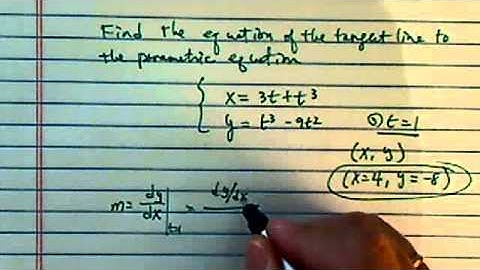 Find the equation of the tangent line to
the parametric equation
x = 3t + t³
y = t³ - 9t² @ t = 1
(x, y)
(x = 4, y = -8)
m = dy/dx | t=1 = dy/dx